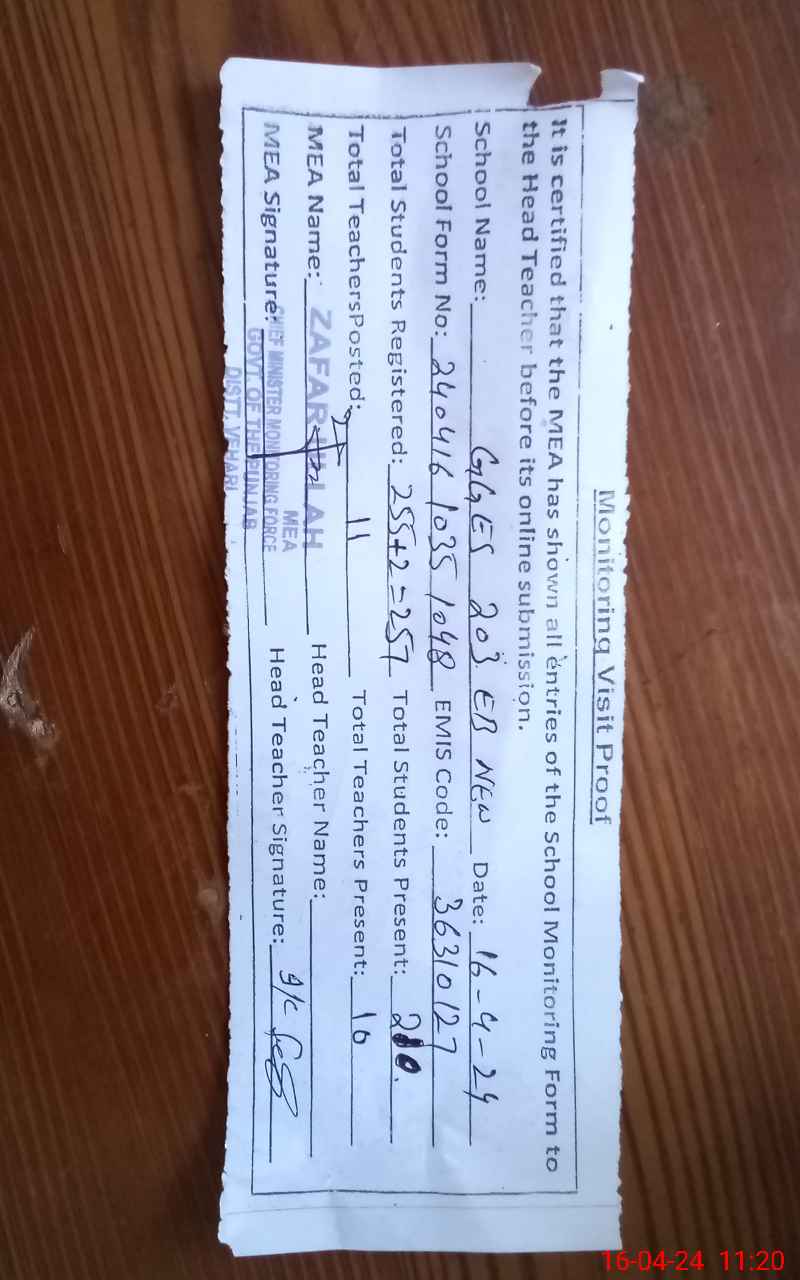 Monitoring Visit Proof
It is certified that the MEA has shown all entries of the School Monitoring Form to
the Head Teacher before its online submission.
School Name: GGES 203 EB NEW Date: 16-4-24
School Form No: 240416 1035 1048 EMIS Code: 36310127
Total Students Registered: 255+2=257 Total Students Present: 210.
Total TeachersPosted: 11 Total Teachers Present: 10
MEA Name: ZAFAR ULLAH Head Teacher Name:
MEA
MEA Signature: CHIEF MINISTER MONITORING FORCE Head Teacher Signature: I/C
GOVT. OF THE PUNJAB
DISTT. VEHARI
16-04-24 11:20